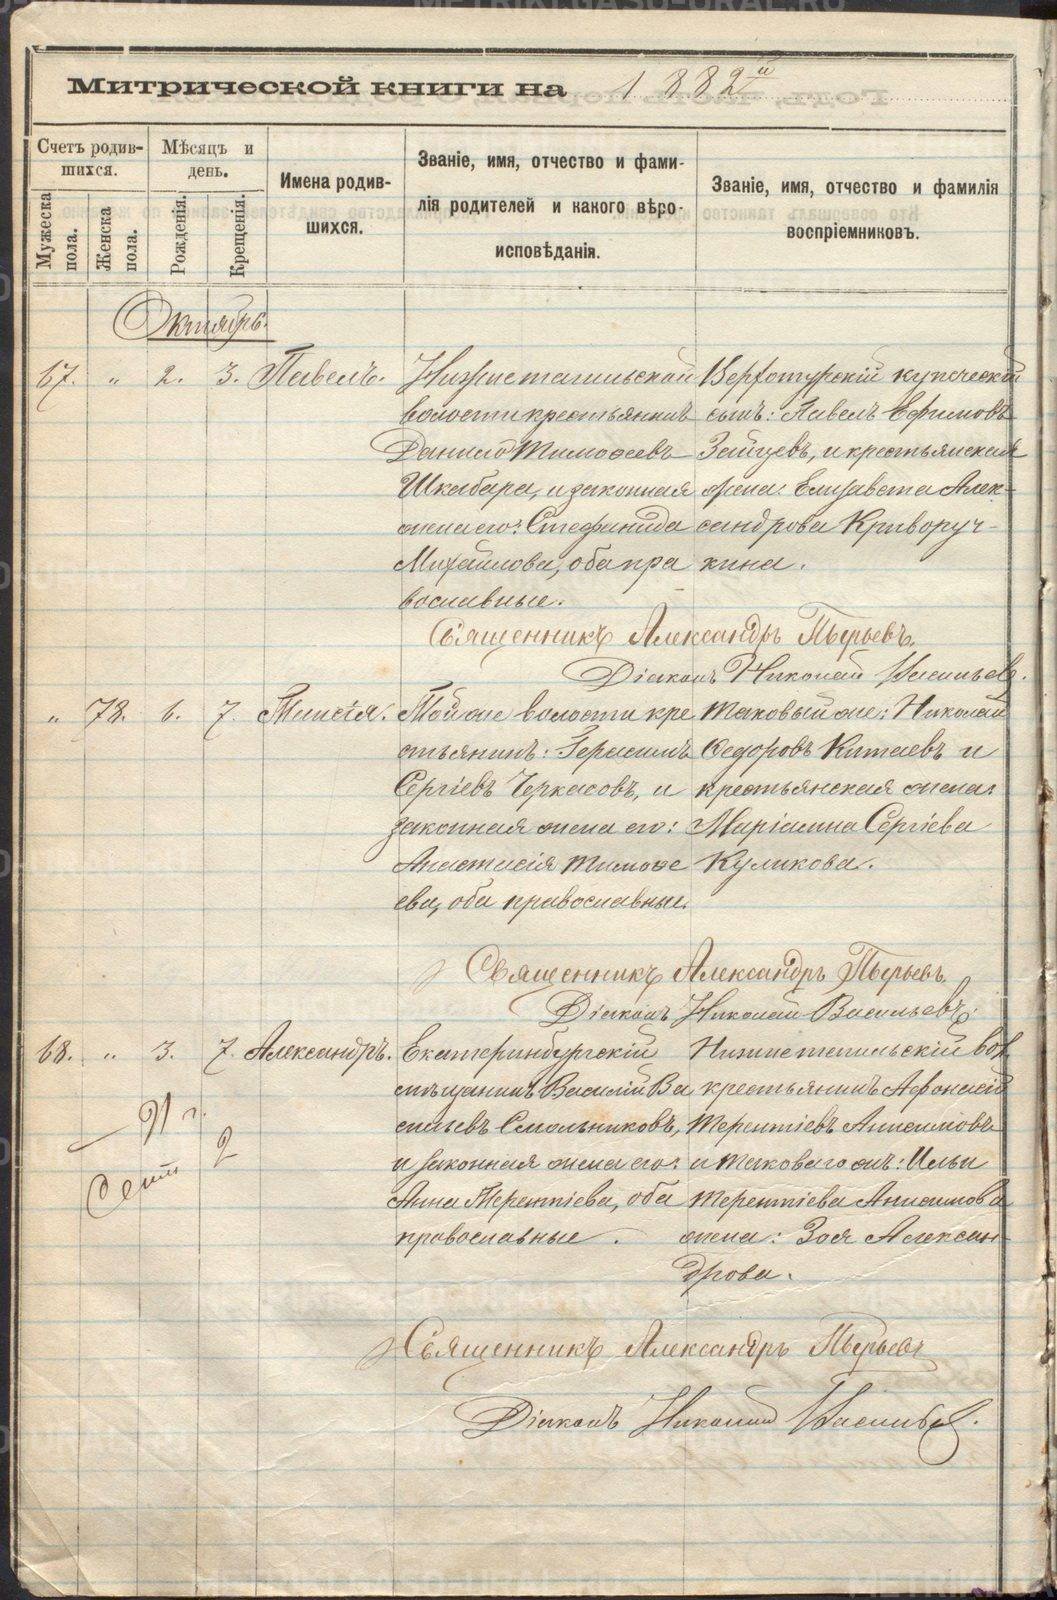 Митрической книги на 1882й
Счетъ родив-
шихся.
Мужеска пола.
Женска пола.
Мѣсяцъ и
день.
Рожденія.
Крещенія.
Имена родив-
шихся.
Званіе, имя, отчество и фами-
лія родителей и какого вѣро-
исповѣданія.
Званіе, имя, отчество и фамилія
воспріемниковъ.
Октябрь.
67. " 2. 3. Павелъ.
Нижнетагильской
волости крестьянинъ
Данило Тимоѳеевъ
Шкабара, и законная
жена его: Стефанида
Михайлова, оба пра
вославные.
Верхотурскій купеческій
сынъ: Павелъ Ефимовъ
Зайцевъ, и крестьянская
жена: Елизавета Алек-
сандрова Криворуч-
кина.
Священникъ Александръ
Діаконъ Николай Васильевъ.
" 78. 6. 7. Таисія.
Той же волости кре
стьянинъ: Герасимъ
Сергіевъ Черкасовъ, и
законная жена его:
Анастасія Тимоѳе
ева, оба православные.
Таковый же: Николай
Ѳедоровъ Китаевъ и
крестьянская жена:
Маріамна Сергіева
Куликова.
Священникъ Александръ
Діаконъ Николай Васильевъ.
68. " 3. 7. Александръ.
Сент 2
Екатеринбургскій
мѣщанинъ Василій Ва
сильевъ Смольниковъ,
и законная жена его:
Анна Терентіева, оба
православные.
Нижнетагильскій вол
крестьянинъ Афонасій
Терентіевъ Анисимовъ
и таковаго жъ: Ильи
Терентіева Анисимова
жена: Зоя Алексан-
дрова.
Священникъ Александръ
Діаконъ Николай Васильевъ.